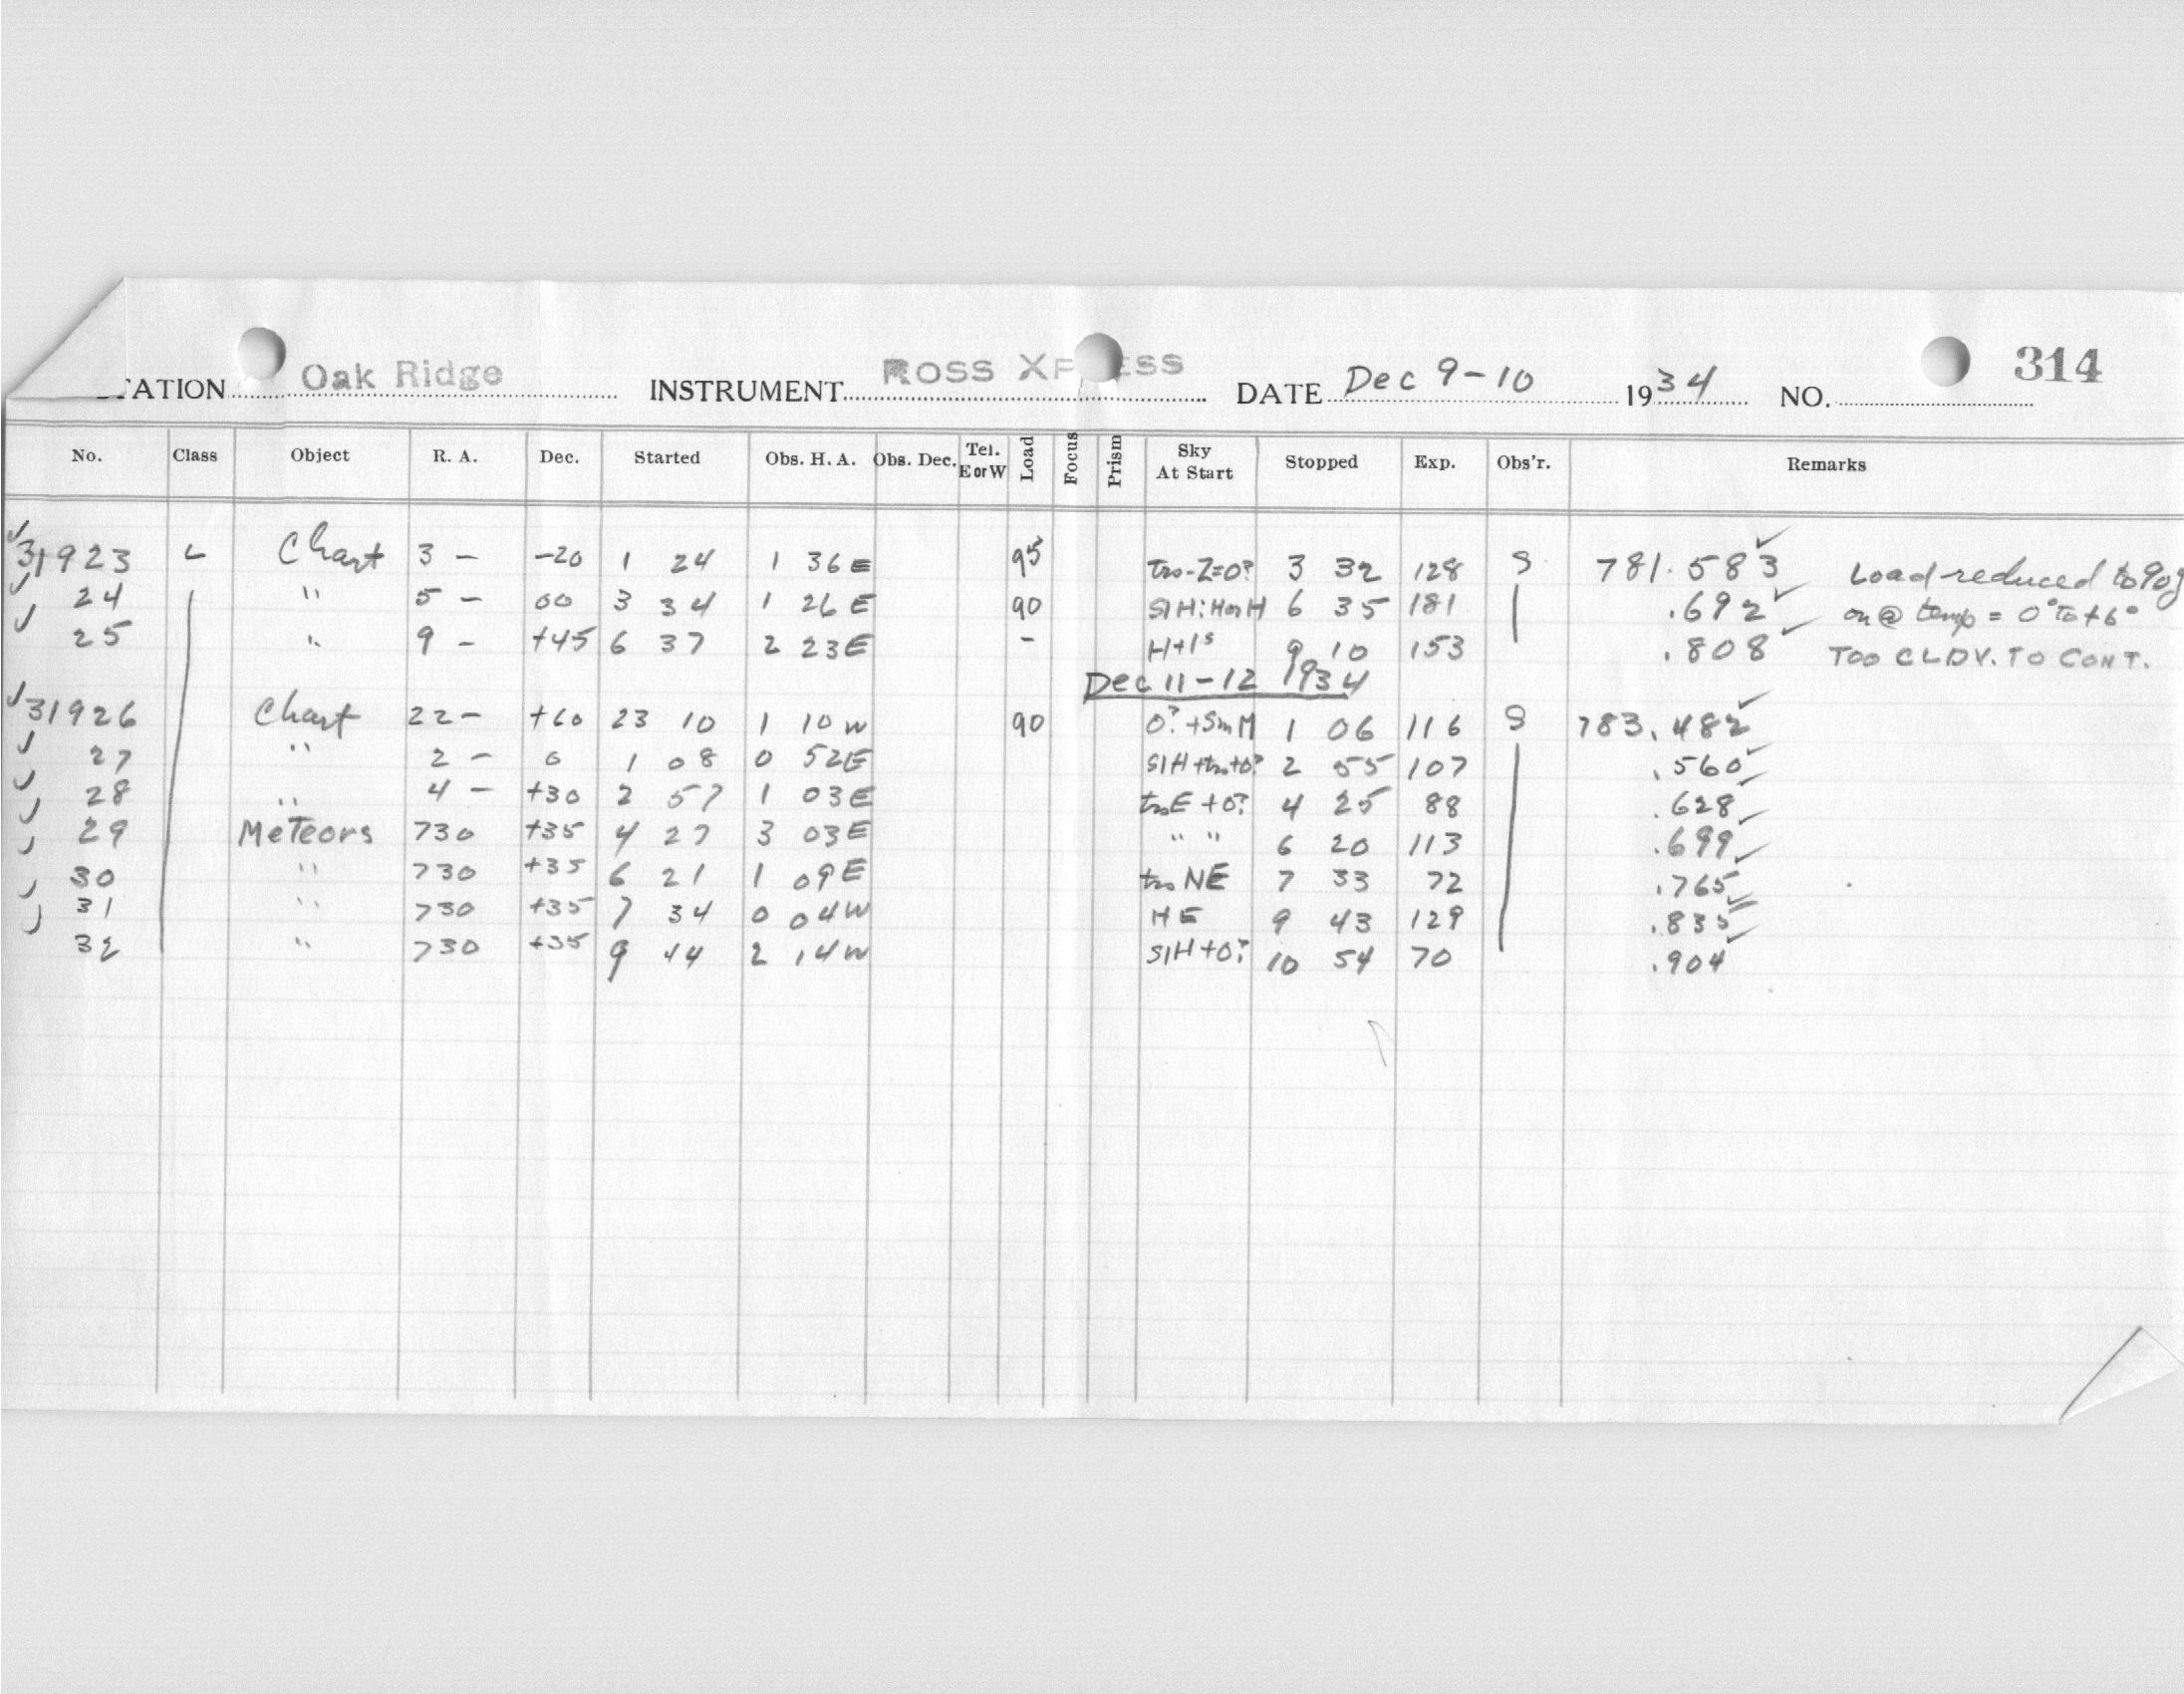 TATION Oak Ridge INSTRUMENT ROSS XP ESS DATE Dec 9-10 1934 NO. 314
No. Class Object R. A. Dec. Started Obs. H. A. Obs. Dec. Tel. E or W Load Focus Prism Sky At Start Stopped Exp. Obs'r. Remarks
31923 L Chart 3 - -20 1 24 1 36 E 95 3 32 128 S 781.583 Load reduced to 90g
24 " 5 - 00 3 34 1 26 E 90 SlH: H on H 6 35 181 .692 on @ temp = 0° to +6°
25 " 9 - +45 6 37 2 23 E - H+1s 9 10 153 .808 TOO CLDY. TO CONT.
Dec 11-12 1934
31926 Chart 22 - +60 23 10 1 10 W 90 0? + Sm M 1 06 116 S 783.482
27 " 2 - 0 1 08 0 52 E 2 55 107 .560
28 " 4 - +30 2 57 1 03 E E + 0? 4 25 88 .628
29 Meteors 730 +35 4 27 3 03 E " " 6 20 113 .699
30 " 730 +35 6 21 1 09 E NE 7 33 72 .765
31 " 730 +35 7 34 0 04 W HE 9 43 129 .835
32 " 730 +35 9 44 2 14 W SlH + 0? 10 54 70 .904